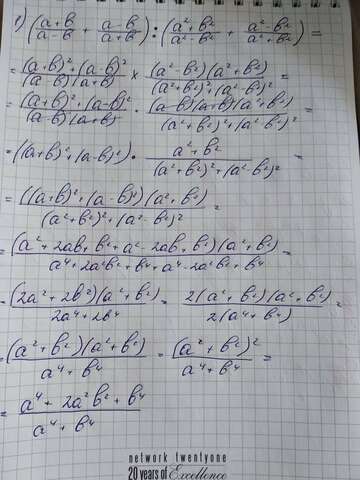 г) ((a+b)/(a-b) + (a-b)/(a+b)) : ((a²+b²)/(a²-b²) + (a²-b²)/(a²+b²)) =
= ((a+b)²+(a-b)²)/((a-b)(a+b)) × ((a²-b²)(a²+b²))/((a²+b²)²+(a²-b²)²) =
= ((a+b)²+(a-b)²)/((a-b)(a+b)) · ((a-b)(a+b)(a²+b²))/((a²+b²)²+(a²-b²)²) =
= ((a+b)²+(a-b)²) · (a²+b²)/((a²+b²)²+(a²-b²)²) =
= (((a+b)²+(a-b)²)(a²+b²))/((a²+b²)²+(a²-b²)²) =
= ((a²+2ab+b²+a²-2ab+b²)(a²+b²))/(a⁴+2a²b²+b⁴+a⁴-2a²b²+b⁴) =
= ((2a²+2b²)(a²+b²))/(2a⁴+2b⁴) = (2(a²+b²)(a²+b²))/(2(a⁴+b⁴)) =
= ((a²+b²)(a²+b²))/(a⁴+b⁴) = (a²+b²)²/(a⁴+b⁴) =
= (a⁴+2a²b²+b⁴)/(a⁴+b⁴)
network twentyone
20 years of Excellence